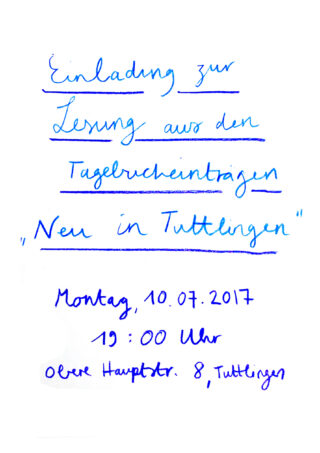 Einlading zur
Lesung aus den
Tagebucheinträgen
„Neu in Tuttlingen“
Montag, 10.07.2017
19:00 Uhr
Obere Hauptstr. 8, Tuttlingen